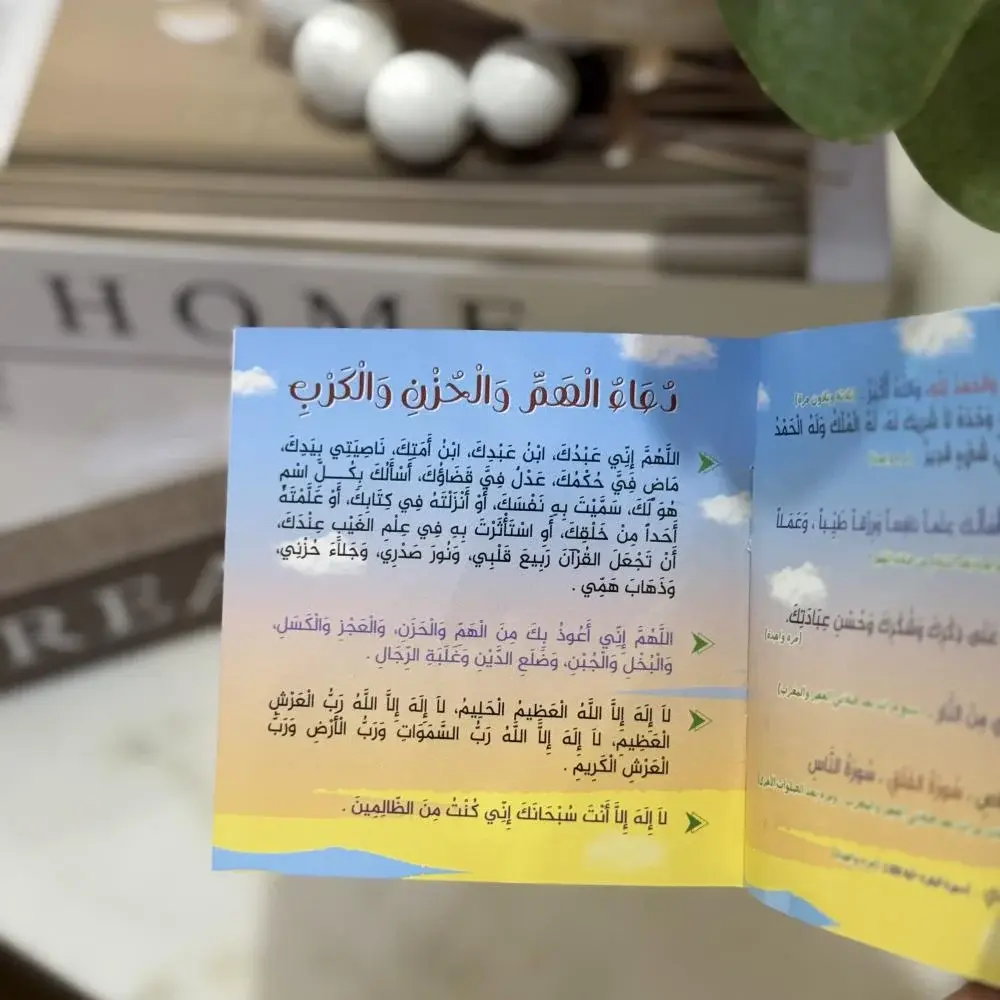 HOME
دُعَاءُ الْهَمِّ وَالْحُزْنِ وَالْكَرْبِ
اللَّهُمَّ إِنِّي عَبْدُكَ، ابْنُ عَبْدِكَ، ابْنُ أَمَتِكَ، نَاصِيَتِي بِيَدِكَ،
مَاضٍ فِيَّ حُكْمُكَ، عَدْلٌ فِيَّ قَضَاؤُكَ، أَسْأَلُكَ بِكُلِّ اسْمٍ
هُوَ لَكَ، سَمَّيْتَ بِهِ نَفْسَكَ، أَوْ أَنْزَلْتَهُ فِي كِتَابِكَ، أَوْ عَلَّمْتَهُ
أَحَداً مِنْ خَلْقِكَ، أَو اسْتَأْثَرْتَ بِهِ فِي عِلْمِ الغَيْبِ عِنْدَكَ،
أَنْ تَجْعَلَ القُرْآنَ رَبِيعَ قَلْبِي، وَنُورَ صَدْرِي، وَجَلاَءَ حُزْنِي،
وَذَهَابَ هَمِّي .
اللَّهُمَّ إِنِّي أَعُوذُ بِكَ مِنَ الْهَمِّ وَالْحَزَنِ، وَالْعَجْزِ وَالْكَسَلِ،
وَالْبُخْلِ وَالْجُبْنِ، وَضَلَعِ الدَّيْنِ وَغَلَبَةِ الرِّجَالِ .
لاَ إِلَهَ إِلاَّ اللَّهُ الْعَظِيمُ الْحَلِيمُ، لاَ إِلَهَ إِلاَّ اللَّهُ رَبُّ الْعَرْشِ
الْعَظِيمِ، لاَ إِلَهَ إِلاَّ اللَّهُ رَبُّ السَّمَوَاتِ وَرَبُّ الْأَرْضِ وَرَبُّ
الْعَرْشِ الْكَرِيمِ .
لاَ إِلَهَ إِلاَّ أَنْتَ سُبْحَانَكَ إِنِّي كُنْتُ مِنَ الظَّالِمِينَ .
وَحْدَهُ لاَ شَرِيكَ لَهُ، لَهُ الْمُلْكُ وَلَهُ الْحَمْدُ
عِلْماً نَافِعاً وَرِزْقاً طَيِّباً ، وَعَمَلاً
ذِكْرِكَ وَشُكْرِكَ وَحُسْنِ عِبَادَتِكَ.
(مرة واحدة)
مِنَ النَّارِ
سُورَةُ الفَلَق ، سُورَةُ النَّاسِ